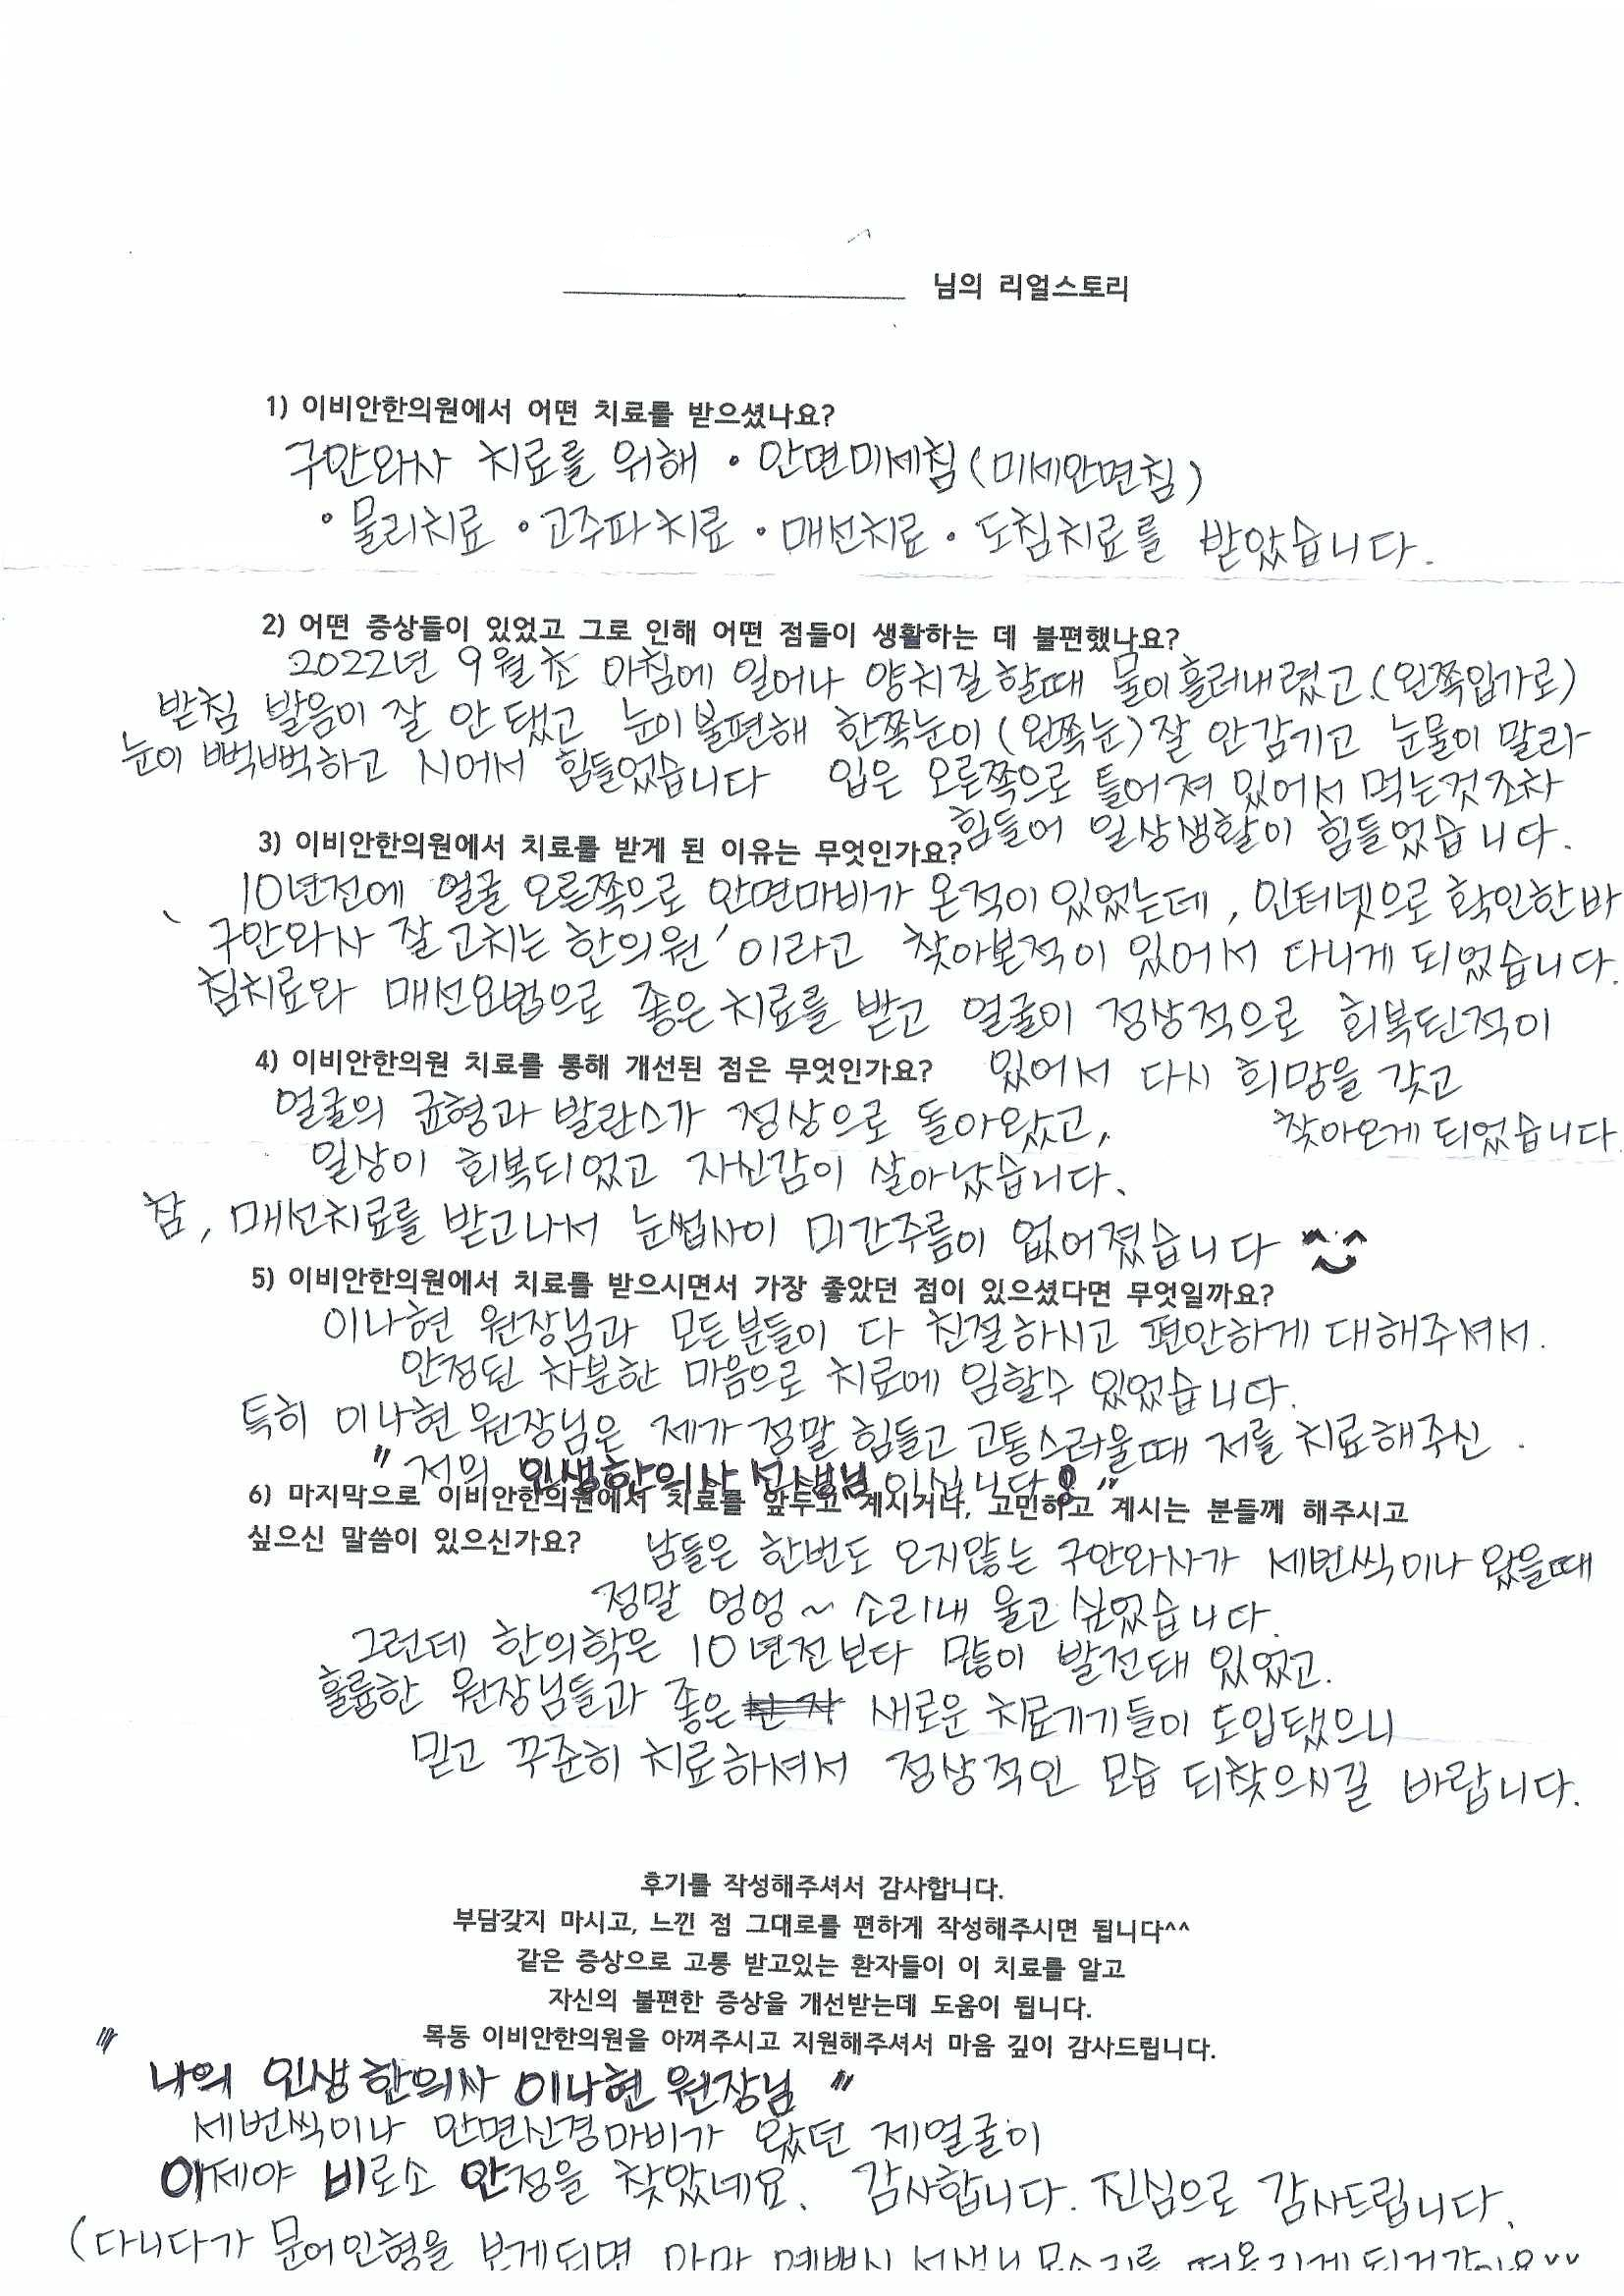 님의 리얼스토리
1) 이비안한의원에서 어떤 치료를 받으셨나요?
구안와사 치료를 위해 · 안면미세침(미세안면침)
· 물리치료 · 고주파치료 · 매선치료 · 도침치료를 받았습니다.
2) 어떤 증상들이 있었고 그로 인해 어떤 점들이 생활하는 데 불편했나요?
2022년 9월초 아침에 일어나 양치질할때 물이흘러내렸고.(왼쪽입가로)
받침 발음이 잘 안됐고 눈이불편해 한쪽눈이(왼쪽눈)잘 안감기고 눈물이 말라
눈이 뻑뻑하고 시어서 힘들었습니다 입은 오른쪽으로 틀어져 있어서 먹는것조차
힘들어 일상생활이 힘들었습니다.
3) 이비안한의원에서 치료를 받게 된 이유는 무엇인가요?
10년전에 얼굴 오른쪽으로 안면마비가 온적이 있었는데, 인터넷으로 확인한바
‘구안와사 잘고치는 한의원’이라고 찾아본적이 있어서 다니게 되었습니다.
침치료와 매선요법으로 좋은치료를 받고 얼굴이 정상적으로 회복된적이
있어서 다시 희망을 갖고
찾아오게 되었습니다
4) 이비안한의원 치료를 통해 개선된 점은 무엇인가요?
얼굴의 균형과 발란스가 정상으로 돌아왔고,
일상이 회복되었고 자신감이 살아났습니다.
참, 매선치료를 받고나서 눈썹사이 미간주름이 없어졌습니다
5) 이비안한의원에서 치료를 받으시면서 가장 좋았던 점이 있으셨다면 무엇일까요?
이나현 원장님과 모든분들이 다 친절하시고 편안하게 대해주셔서.
안정된 차분한 마음으로 치료에 임할수 있었습니다.
특히 이나현원장님은 제가 정말 힘들고 고통스러울때 저를 치료해주신.
" 저의 인생한의사 선생님이십니다! "
6) 마지막으로 이비안한의원에서 치료를 앞두고 계시거나, 고민하고 계시는 분들께 해주시고
싶으신 말씀이 있으신가요?
남들은 한번도 오지않는 구안와사가 세번씩이나 왔을때
정말 엉엉~ 소리내 울고 싶었습니다.
그런데 한의학은 10년전보다 많이 발전돼 있었고.
훌륭한 원장님들과 좋은 새로운 치료기기들이 도입됐으니
믿고 꾸준히 치료하셔서 정상적인 모습 되찾으시길 바랍니다.
후기를 작성해주셔서 감사합니다.
부담갖지 마시고, 느낀 점 그대로를 편하게 작성해주시면 됩니다^^
같은 증상으로 고통 받고있는 환자들이 이 치료를 알고
자신의 불편한 증상을 개선받는데 도움이 됩니다.
목동 이비안한의원을 아껴주시고 지원해주셔서 마음 깊이 감사드립니다.
" 나의 인생한의사 이나현원장님 "
세번씩이나 안면신경마비가 왔던 제얼굴이
이제야 비로소 안정을 찾았네요. 감사합니다. 진심으로 감사드립니다.
(다니다가 문어인형을 보게되면 아마